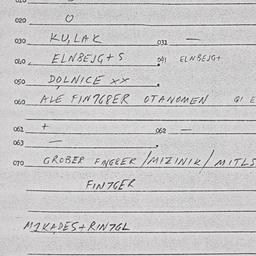 020 O
030 KU,LAK 031 —
040 ELNBEJG+S 041 ELNBEJG+
050 DOLNICE xx
060 ALE FIN7GBER OTANOMEN
061 + 062 —
063 —
070 GROBER FINGEER / MIZINIK / MITLS
FIN7GER
M2KADES+RIN7GL